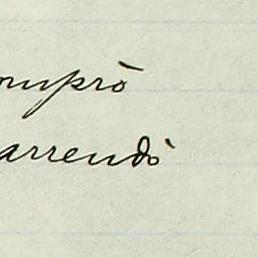 mprò
arrendò